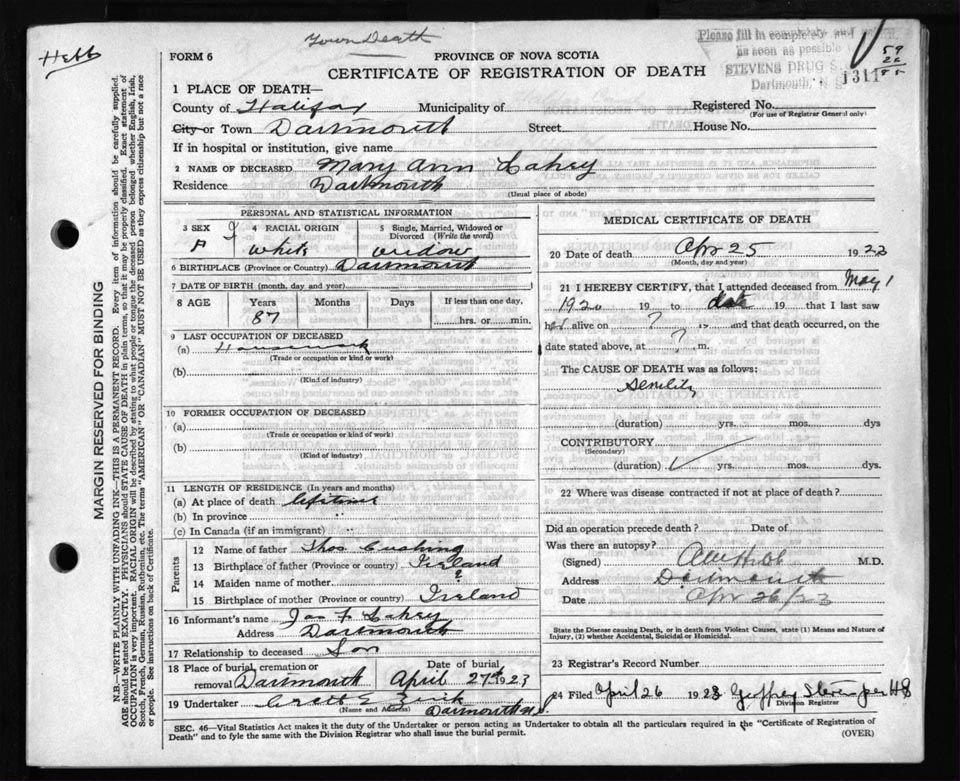 Town Death
Hebb
FORM 6
PROVINCE OF NOVA SCOTIA
CERTIFICATE OF REGISTRATION OF DEATH
Please fill in completely and
as soon as possible
STEVENS DRUG S
Dartmouth, N. S.
1311
59
1 PLACE OF DEATH—
County of Halifax Municipality of Registered No.
(For use of Registrar General only)
City or Town Dartmouth Street House No.
If in hospital or institution, give name
2 NAME OF DECEASED Mary Ann Lahey
Residence Dartmouth
(Usual place of abode)
MARGIN RESERVED FOR BINDING
N.B.—WRITE PLAINLY WITH UNFADING INK—THIS IS A PERMANENT RECORD. Every item of information should be carefully supplied.
AGE should be stated EXACTLY. PHYSICIANS should STATE CAUSE OF DEATH in plain terms, so that it may be properly classified. Exact statement of
OCCUPATION is very important. RACIAL ORIGIN will be described by stating to what people or tongue the deceased person belonged whether English, Irish,
Scotch, French, German, Russian, Ruthenian, etc. The terms "AMERICAN" OR "CANADIAN" MUST NOT BE USED as they express citizenship but not a race
or people. See instructions on back of Certificate.
PERSONAL AND STATISTICAL INFORMATION
3 SEX 4 RACIAL ORIGIN 5 Single, Married, Widowed or
Divorced (Write the word)
F White widow
6 BIRTHPLACE (Province or Country) Dartmouth
7 DATE OF BIRTH (month, day and year)
8 AGE Years Months Days If less than one day,
87 hrs. or min.
9 LAST OCCUPATION OF DECEASED
(a) Housework
(Trade or occupation or kind or work)
(b)
(Kind of industry)
10 FORMER OCCUPATION OF DECEASED
(a)
(Trade or occupation or kind of work)
(b)
(Kind of industry)
11 LENGTH OF RESIDENCE (In years and months)
(a) At place of death lifetime
(b) In province "
(c) In Canada (if an immigrant)
Parents
12 Name of father Thos Cushing
13 Birthplace of father (Province or country) Ireland
14 Maiden name of mother ?
15 Birthplace of mother (Province or country) Ireland
16 Informant's name Jas F Lahey
Address Dartmouth
17 Relationship to deceased Son
18 Place of burial, cremation or Date of burial
removal Dartmouth April 27th 1923
19 Undertaker
(Name and Address) Dartmouth N.S.
MEDICAL CERTIFICATE OF DEATH
20 Date of death Apr 25 1923
(Month, day and year)
21 I HEREBY CERTIFY, that I attended deceased from May 1
1920 19 to date 19 that I last saw
her alive on ? 19 and that death occurred, on
date stated above, at ? m.
The CAUSE OF DEATH was as follows:
Senility
(duration) yrs. mos. dys
CONTRIBUTORY
(Secondary)
(duration) yrs. mos. dys.
22 Where was disease contracted if not at place of death?
Did an operation precede death? Date of
Was there an autopsy?
(Signed) M.D.
Address Dartmouth
Date Apr 26/23
State the Disease causing Death, or in death from Violent Causes, state (1) Means and Nature of
Injury, (2) whether Accidental, Suicidal or Homicidal.
23 Registrar's Record Number
24 Filed April 26 1923 Geoffrey Stevens per HS
Division Registrar
SEC. 46—Vital Statistics Act makes it the duty of the Undertaker or person acting as Undertaker to obtain all the particulars required in the "Certificate of Registration of
Death" and to fyle the same with the Division Registrar who shall issue the burial permit.
(OVER)